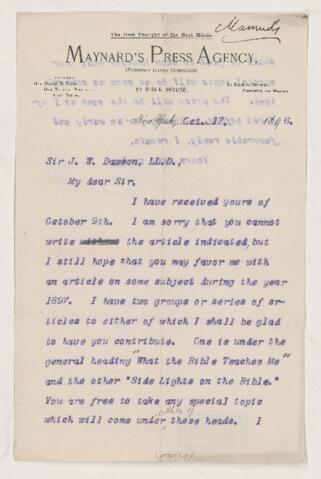 The Best Thought of the Best Minds.
Maynard's
MAYNARD'S PRESS AGENCY,
BIBLE HOUSE.
New York, Oct. 17, 1896.
Sir J. W. Dawson, LL.D.,
My dear Sir,
I have received yours of
October 9th. I am sorry that you cannot
write the article indicated, but
I still hope that you may favor me with
an article on some subject during the year
1897. I have two groups or series of ar-
ticles to either of which I shall be glad
to have you contribute. One is under the
general heading "What the Bible Teaches Me"
and the other "Side Lights on the Bible."
You are free to take any special topic
either of
which will come under these heads. I